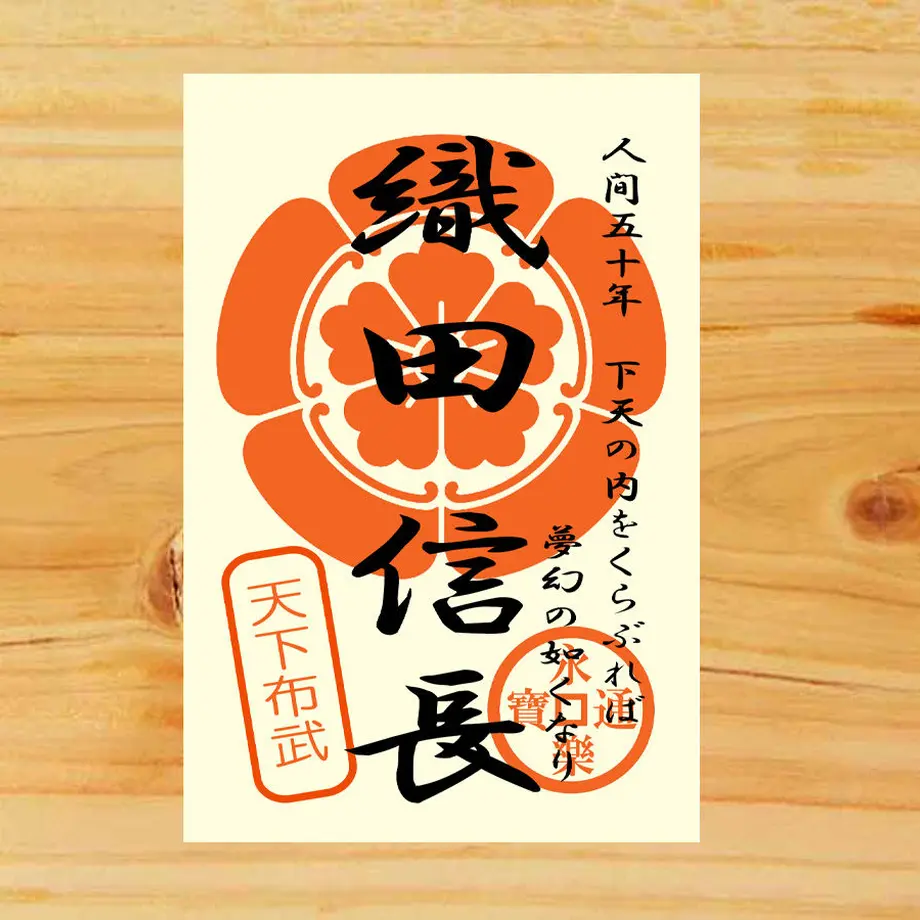 人間五十年　下天の内をくらぶれば
夢幻の如くなり
織田信長
天下布武
永樂通寶